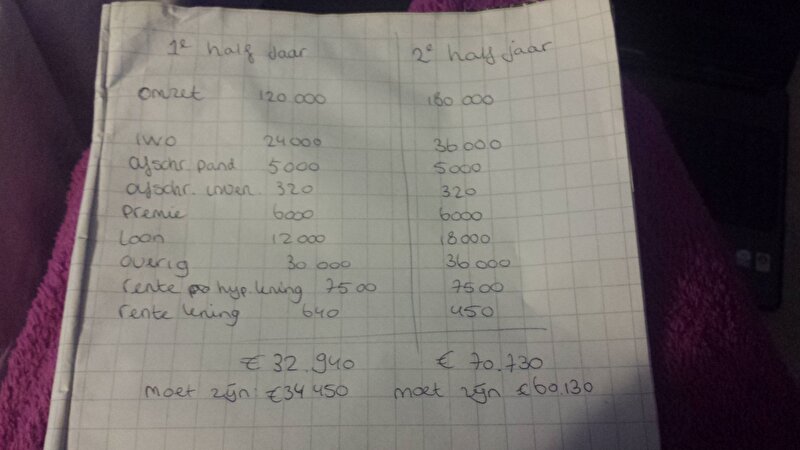 1e half jaar 2e half jaar
omzet 120.000 180 000
IWO 24000 36000
afschr. pand 5000 5000
afschr. inven. 320 320
premie 6000 6000
loon 12000 18000
overig 30 000 36000
rente hyp. lening 7500 7500
rente lening 640 450
€ 32.940 € 70.730
moet zijn: €34450 moet zijn €60.130